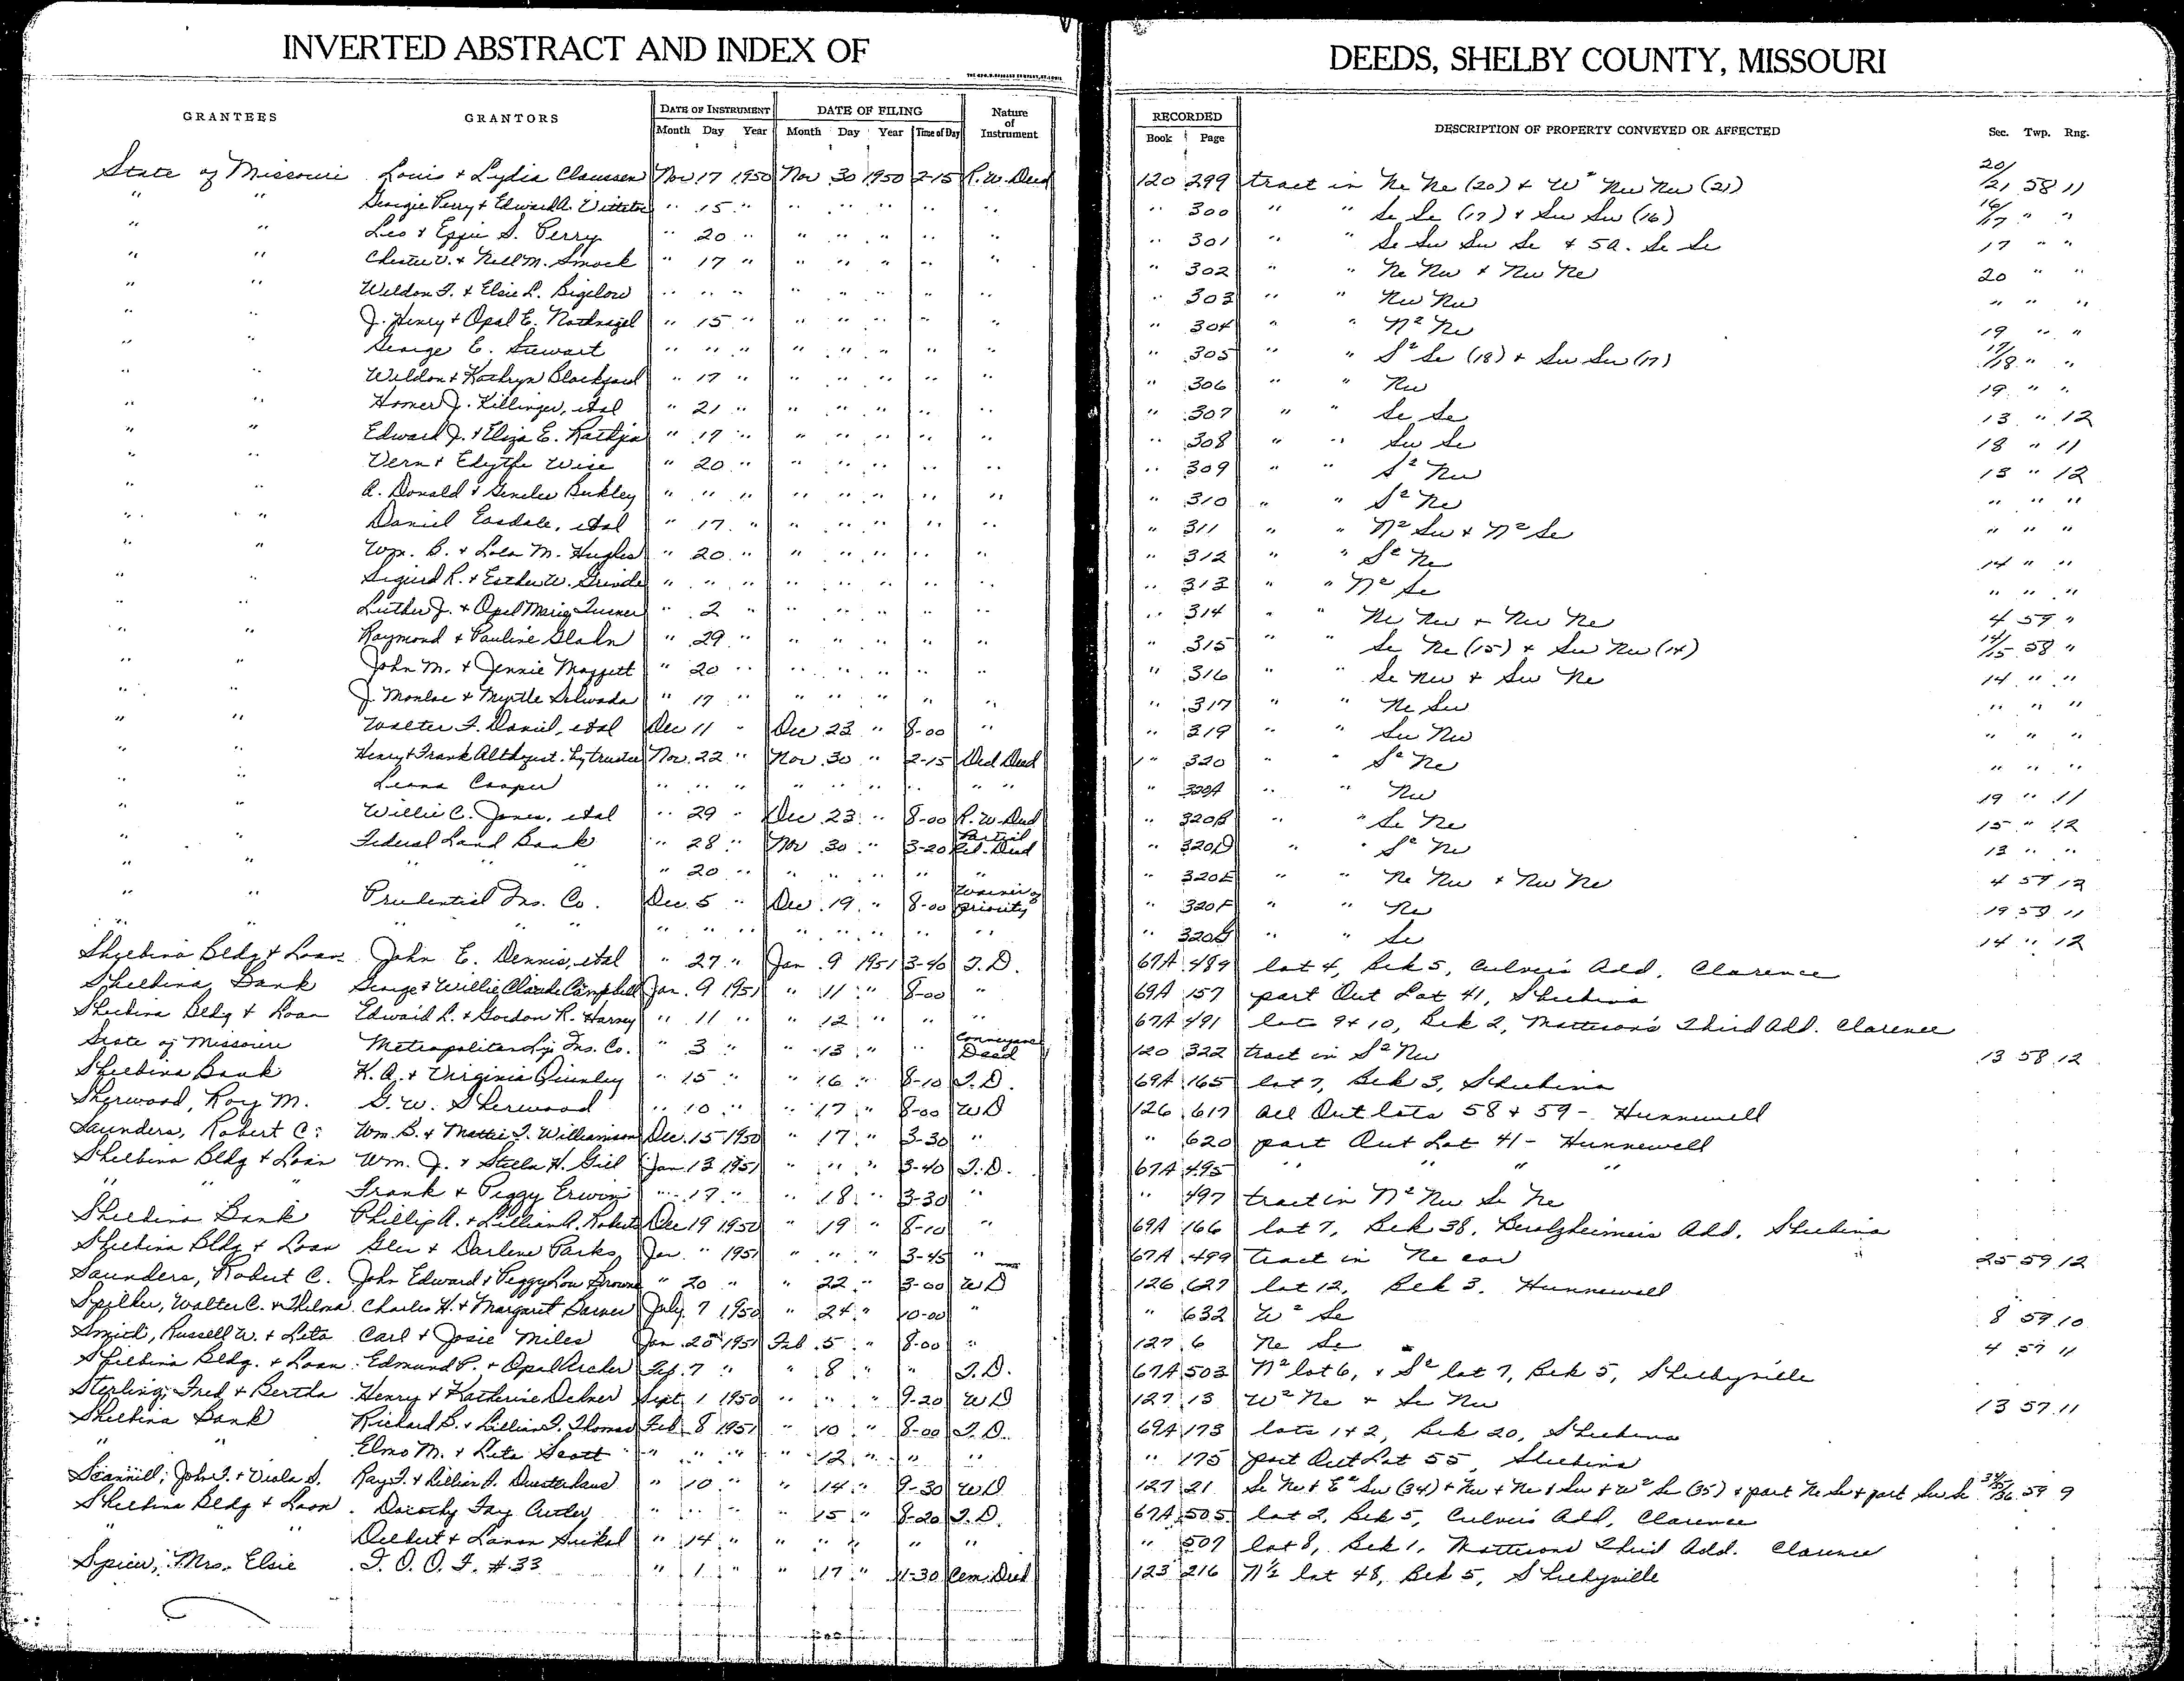 INVERTED ABSTRACT AND INDEX OF DEEDS, SHELBY COUNTY, MISSOURI
GRANTEES GRANTORS DATE OF INSTRUMENT DATE OF FILING Nature of Instrument RECORDED DESCRIPTION OF PROPERTY CONVEYED OR AFFECTED Sec. Twp. Rng.
Month Day Year Month Day Year Time of Day Book Page
State of Missouri Louis & Lydia Claussen Nov 17 1950 Nov 30 1950 2-15 R.W. Deed 120 299 tract in Ne Ne (20) & W² Nw Nw (21) 20/21 58 11
" " Georgie Perry & Edward A. " 15 " " " " " " " 300 " " Se Se (17) & Sw Sw (16) 16/17 " "
" " Leo & Effie S. Perry " 20 " " " " " " " 301 " " Se Sw Sw Se & 5a. Se Se 17 " "
" " Chester V. & Nell M. Smock " 17 " " " " " " " 302 " " Ne Nw & Nw Ne 20 " "
" " Weldon F. & Elsie L. Bigelow " " " " " " " " " 303 " " Nw Nw " " "
" " J. Henry & Opal E. Nothnagel " 15 " " " " " " " 304 " " N² Ne 19 " "
" " George E. Stewart " " " " " " " " " 305 " " S² Se (18) & Sw Sw (17) 17/18 " "
" " Weldon & Kathryn Blackford " 17 " " " " " " " 306 " " Nw 19 " "
" " Homer J. Killinger, etal " 21 " " " " " " " 307 " " Se Se 13 " 12
" " Edward J. & Eliza E. Rathjen " 17 " " " " " " " 308 " " Sw Se 18 " 11
" " Vern & Edythe Wise " 20 " " " " " " " 309 " " S² Nw 13 " 12
" " A. Donald & Genelee Buckley " " " " " " " " " 310 " " S² Ne " " "
" " Daniel Easdale, etal " 17 " " " " " " " 311 " " N² Sw & N² Se " " "
" " Wm. B. & Lola M. Hughes " 20 " " " " " " " 312 " " S² Ne 14 " "
" " Sigurd R. & Esther W. Grinde " " " " " " " " " 313 " " N² Se " " "
" " Luther J. & Opel Marie Turner " 2 " " " " " " " 314 " " Ne Nw & Nw Ne 4 59 "
" " Raymond & Pauline Glahn " 29 " " " " " " " 315 " " Se Ne (15) & Sw Nw (14) 14/15 58 "
" " John M. & Jennie Moffett " 20 " " " " " " " 316 " " Se Nw & Sw Ne 14 " "
" " J. Monloe & Myrtle " 17 " " " " " " " 317 " " Ne Sw " " "
" " Walter F. Daniel, etal Dec 11 " Dec 23 " 8-00 " " 319 " " Sw Nw " " "
" " Henry & Frank Althquist, by trustee Nov. 22 " Nov. 30 " 2-15 Ded Deed " 320 " " S² Ne " " "
" " Leona Cooper " " " " " " " " " 320A " " Nw 19 " 11
" " Willie C. Jones, etal " 29 " Dec 23 " 8-00 R.W. Deed " 320B " " Se Ne 15 " 12
" " Federal Land Bank " 28 " Nov 30 " 3-20 Partial Rel. Deed " 320D " " S² Ne 13 " "
" " " " " " 20 " " " " " " " 320E " " Ne Nw & Nw Ne 4 59 12
" " Prudential Ins. Co. Dec. 5 " Dec. 19 " 8-00 Waiver of priority " 320F " " Ne 19 58 11
" " " " " " " " " " " " " " 320G " " Se 14 " 12
Shelbina Bldg & Loan John E. Dennis, etal " 27 " Jan. 9 1951 3-40 T.D. 67A 489 lot 4, Bck 5, Culver's Add, Clarence
Shelbina Bank George & Willie Claude Campbell Jan. 9 1951 " 11 " 8-00 " 69A 157 part Out Lot 41, Shelbina
Shelbina Bldg & Loan Edward L. & Gordon R. Harvey " 11 " " 12 " " " 67A 491 lots 9 & 10, Bck 2, Matteson's Third Add. Clarence
State of Missouri Metropolitan Life Ins. Co. " 3 " " 13 " " Conveyance Deed 120 322 tract in S² Nw 13 58 12
Shelbina Bank K. A. & Virginia " 15 " " 16 " 8-10 T.D. 69A 165 lot 7, Bck 3, Shelbina
Sherwood, Roy M. G. W. Sherwood " 10 " " 17 " 8-00 WD 126 617 all Out lots 58 & 59 - Hunnewell
Saunders, Robert C. Wm. B. & Mattie F. Williamson Dec. 15 1950 " 17 " 3-30 " " 620 part Out Lot 41 - Hunnewell
Shelbina Bldg & Loan Wm. J. & Stella H. Gill Jan. 13 1951 " " " 3-40 T.D. 67A 495 " " " "
" " " Frank & Peggy Erwin " 17 " " 18 " 3-30 " " 497 tract in N² Nw Se Ne
Shelbina Bank Phillip A. & Lillian A. Roberts Dec 19 1950 " 19 " 8-10 " 69A 166 lot 7, Bck 38, Berolzheimer's Add. Shelbina
Shelbina Bldg & Loan Glen & Darlene Parks Jan. " 1951 " " " 3-45 " 67A 499 tract in Ne cor 25 59 12
Saunders, Robert C. John Edward & Peggy Lou Browne " 20 " " 22 " 3-00 WD 126 627 lot 12, Bck 3, Hunnewell
Spilker, Walter C. & Thelma Charles H. & Margaret Darner July 7 1950 " 24 " 10-00 " " 632 W² Se 8 59 10
Smith, Russell W. & Leta Carl & Josie Miles Jan. 25 1951 Feb. 5 " 8-00 " 127 6 Ne Se 4 57 11
Shelbina Bldg. & Loan Edmund P. & Opal Archer Feb. 7 " " 8 " " T.D. 67A 503 N² lot 6, & S² lot 7, Bck 5, Shelbyville
Sterling, Fred & Bertha Henry & Katherine Delner Sept. 1 1950 " " " 9-20 WD 127 13 W² Ne & Se Nw 13 57 11
Shelbina Bank Richard B. & Lillian F. Thomas Feb. 8 1951 " 10 " 8-00 T.D. 69A 173 lots 1 & 2, Bck 20, Shelbina
" " Elmo M. & Leta Scott " " " " 12 " " " " 175 part Out Lot 55, Shelbina
Scannill, John F. & Viola S. Ray F. & Lillian A. Duesterhaus " 10 " " 14 " 9-30 WD 127 21 Se Nw & E² Sw (34) & Nw & Ne & Sw & W² Se (35) & part Ne Se & part Sw Se 34/35/36 59 9
Shelbina Bldg & Loan Dorothy Fay Cutler " " " " 15 " 8-20 T.D. 67A 505 lot 2, Bck 5, Culver's Add, Clarence
" " " Delbert & " 14 " " " " " " " 507 lot 8, Bck 1, Mattesons Third Add. Clarence
Spicer, Mrs. Elsie I. O. O. F. #33 " 1 " " 17 " 11-30 Cem. Deed 123 216 N½ lot 48, Bck 5, Shelbyville